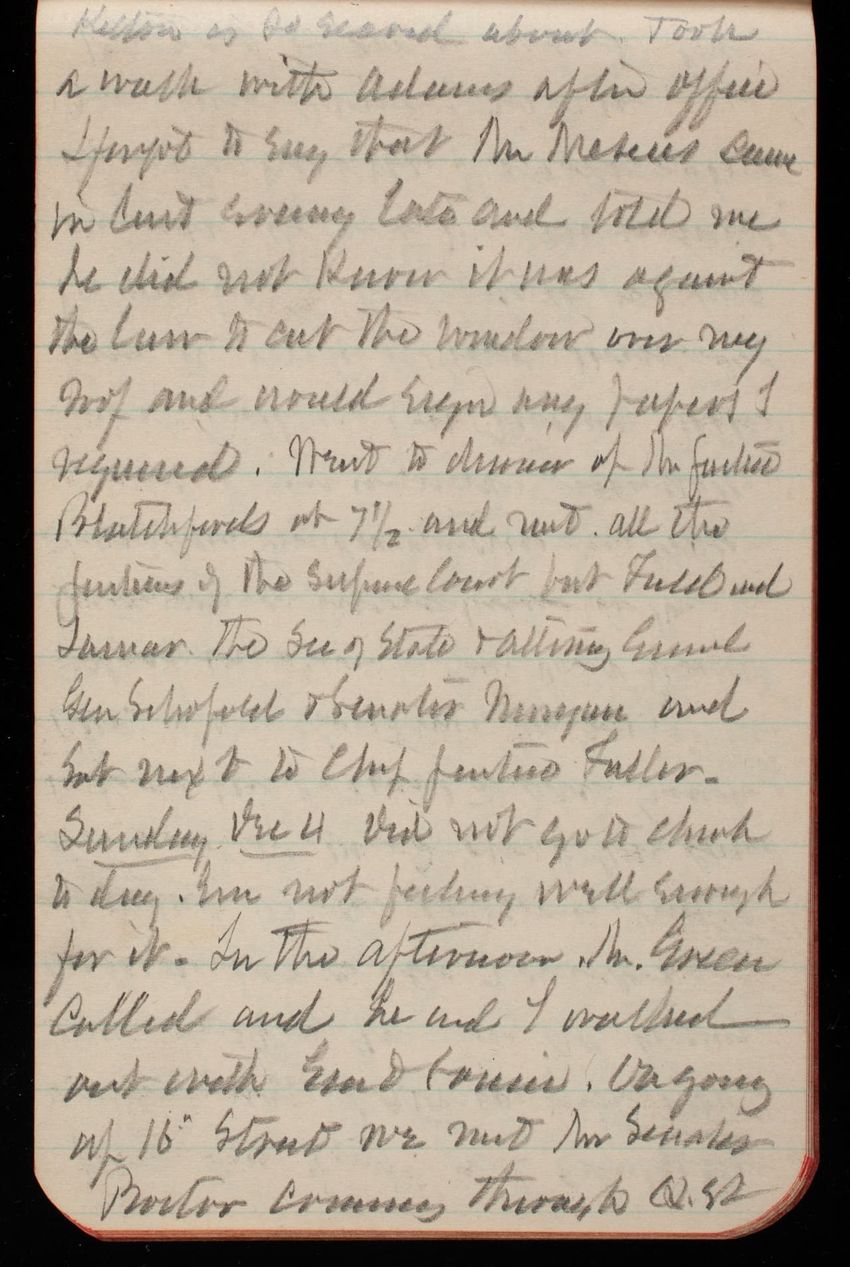 Kelton is so scared about. Took
a walk with Adams after office
I forgot to say that Mr came
in last evening late and told me
he did not know it was against
the law to cut the window over my
roof and would sign any papers I
required. Went to dinner of Mr Justice
Blatchfords at 7 1/2 and met all the
justices of the Supreme Court but Field and
Lamar. The Sec of State & Attorney General
Gen Schofield & Senator Morgan and
sat next to Chief Justice Fuller.
Sunday Dec 4 Did not go to church
to day. Am not feeling well enough
for it. In the afternoon Mr. Green
called and he and I walked
out with and. On going
up 16" Street we met Mr Senator
Proctor coming through Q. St